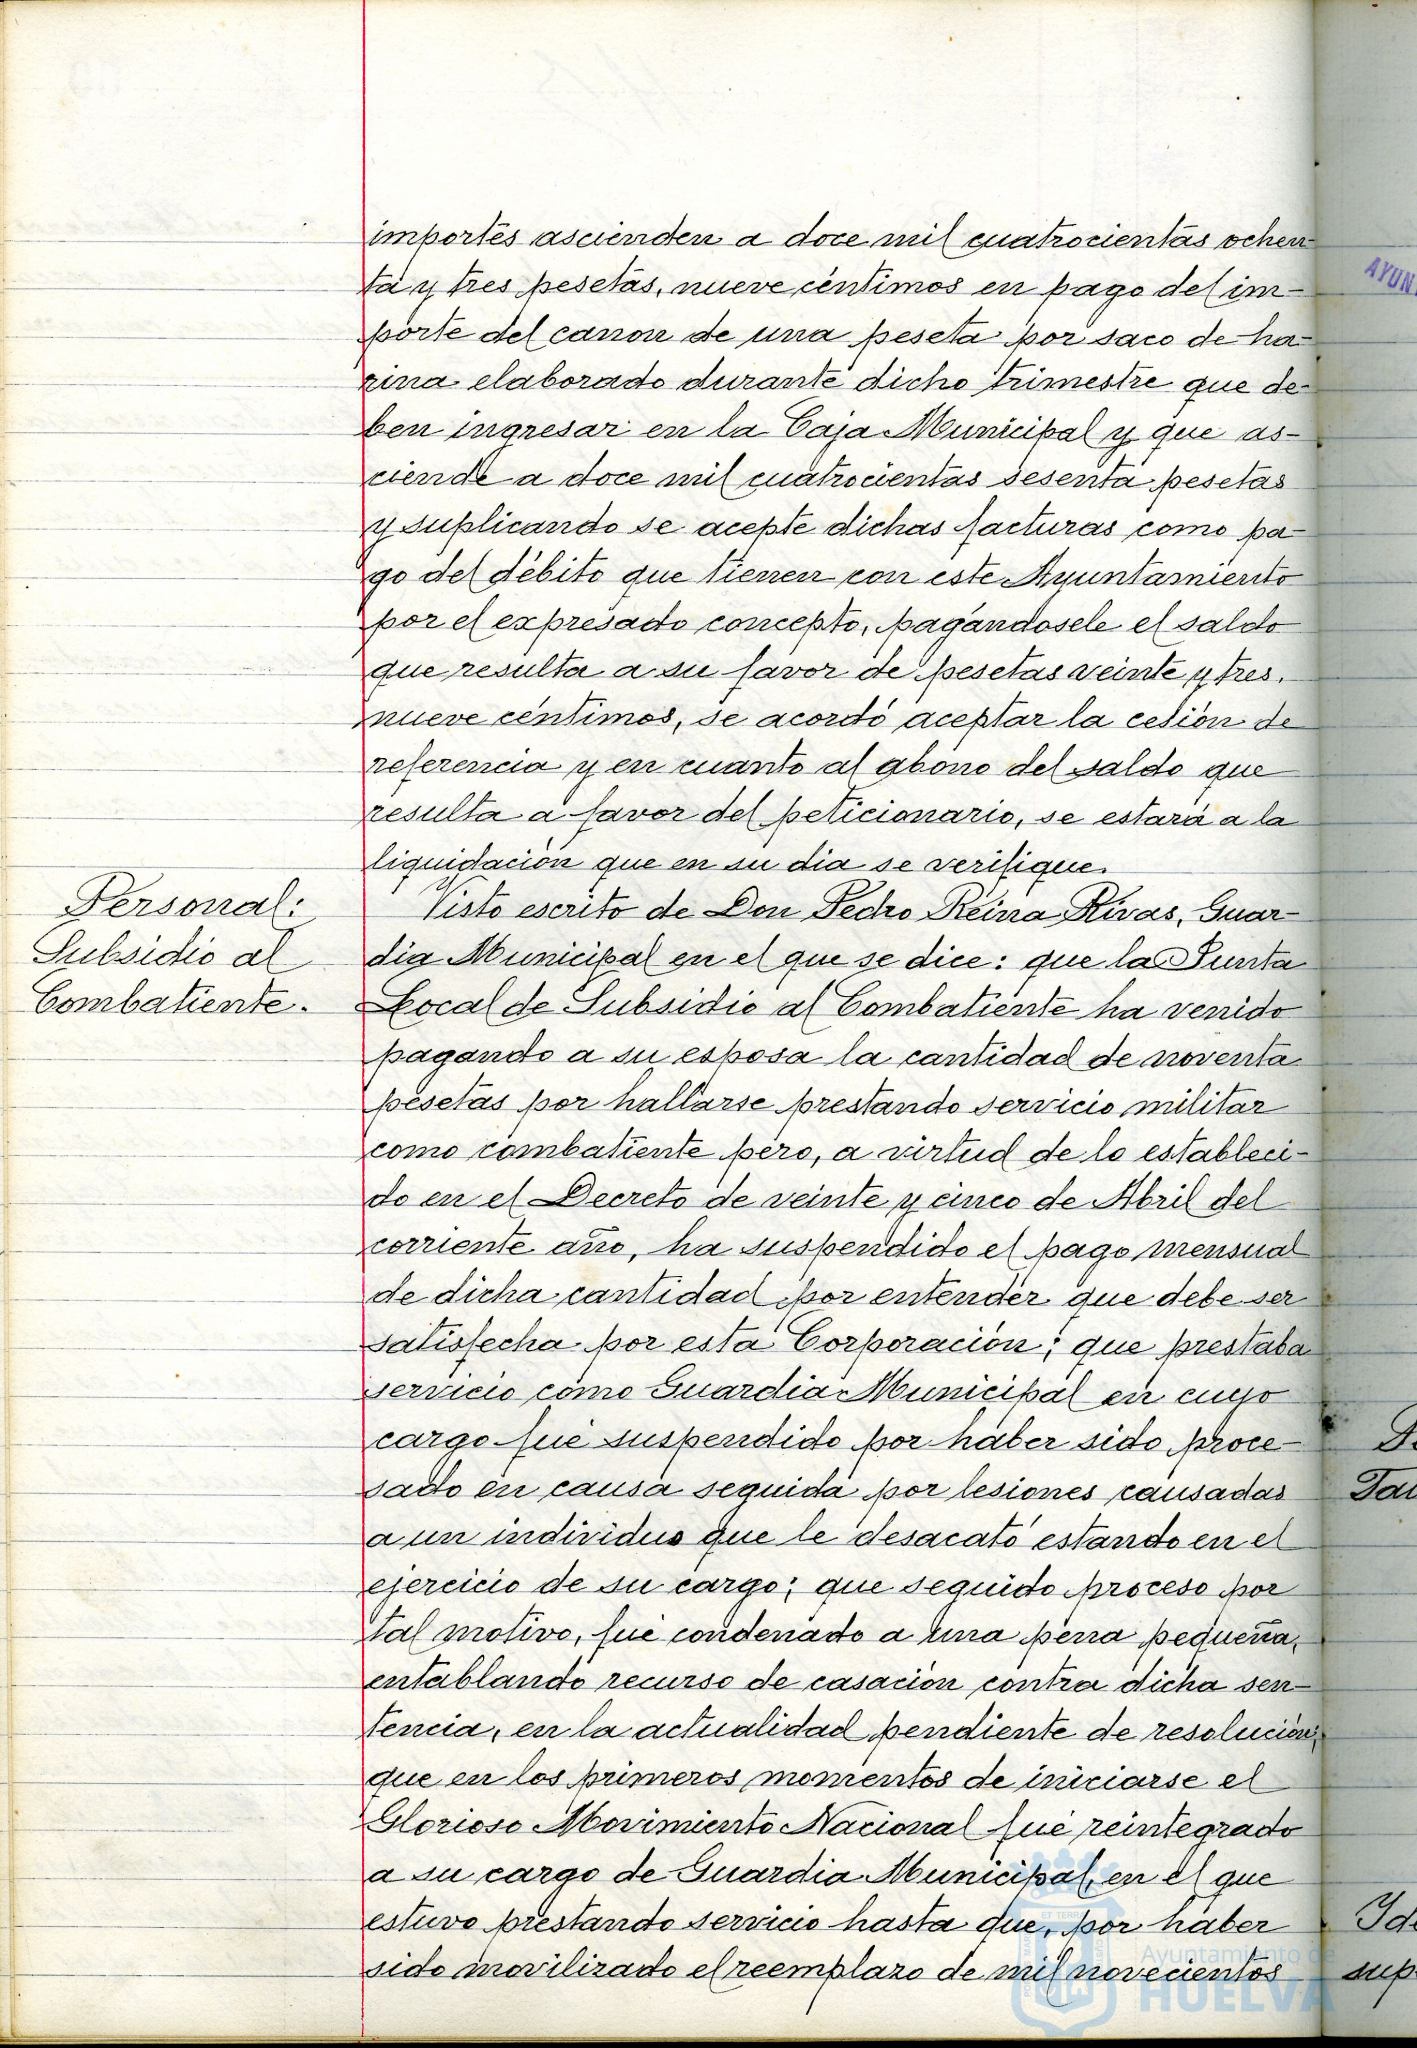 importes ascienden a doce mil cuatrocientas ochen
ta y tres pesetas, nueve céntimos en pago del im-
porte del canon de una peseta por saco de ha-
rina elaborado durante dicho trimestre que de-
ben ingresar en la Caja Municipal y que as-
ciende a doce mil cuatrocientas sesenta pesetas
y suplicando se acepte dichas facturas como pa-
go del débito que tienen con este Ayuntamiento
por el expresado concepto, pagándosele el saldo
que resulta a su favor de pesetas veinte y tres,
nueve céntimos, se acordó aceptar la cesión de
referencia y en cuanto al abono del saldo que
resulta a favor del peticionario, se estará a la
liquidación que en su dia se verifique.
Personal:
Subsidio al
Combatiente.
Visto escrito de Don Pedro Reina Rivas, Guar-
dia Municipal en el que se dice: que la Junta
Local de Subsidio al Combatiente ha venido
pagando a su esposa la cantidad de noventa
pesetas por hallarse prestando servicio militar
como combatiente pero, a virtud de lo estableci-
do en el Decreto de veinte y cinco de Abril del
corriente año, ha suspendido el pago mensual
de dicha cantidad por entender que debe ser
satisfecha por esta Corporación; que prestaba
servicio como Guardia Municipal en cuyo
cargo fué suspendido por haber sido proce-
sado en causa seguida por lesiones causadas
a un individuo que le desacató estando en el
ejercicio de su cargo; que seguido proceso por
tal motivo, fué condenado a una pena pequeña,
entablando recurso de casación contra dicha sen-
tencia, en la actualidad pendiente de resolución,
que en los primeros momentos de iniciarse el
Glorioso Movimiento Nacional fué reintegrado
a su cargo de Guardia Municipal, en el que
estuvo prestando servicio hasta que, por haber
sido movilizado el reemplazo de mil novecientos
AYUN
Ayuntamiento de
HUELVA